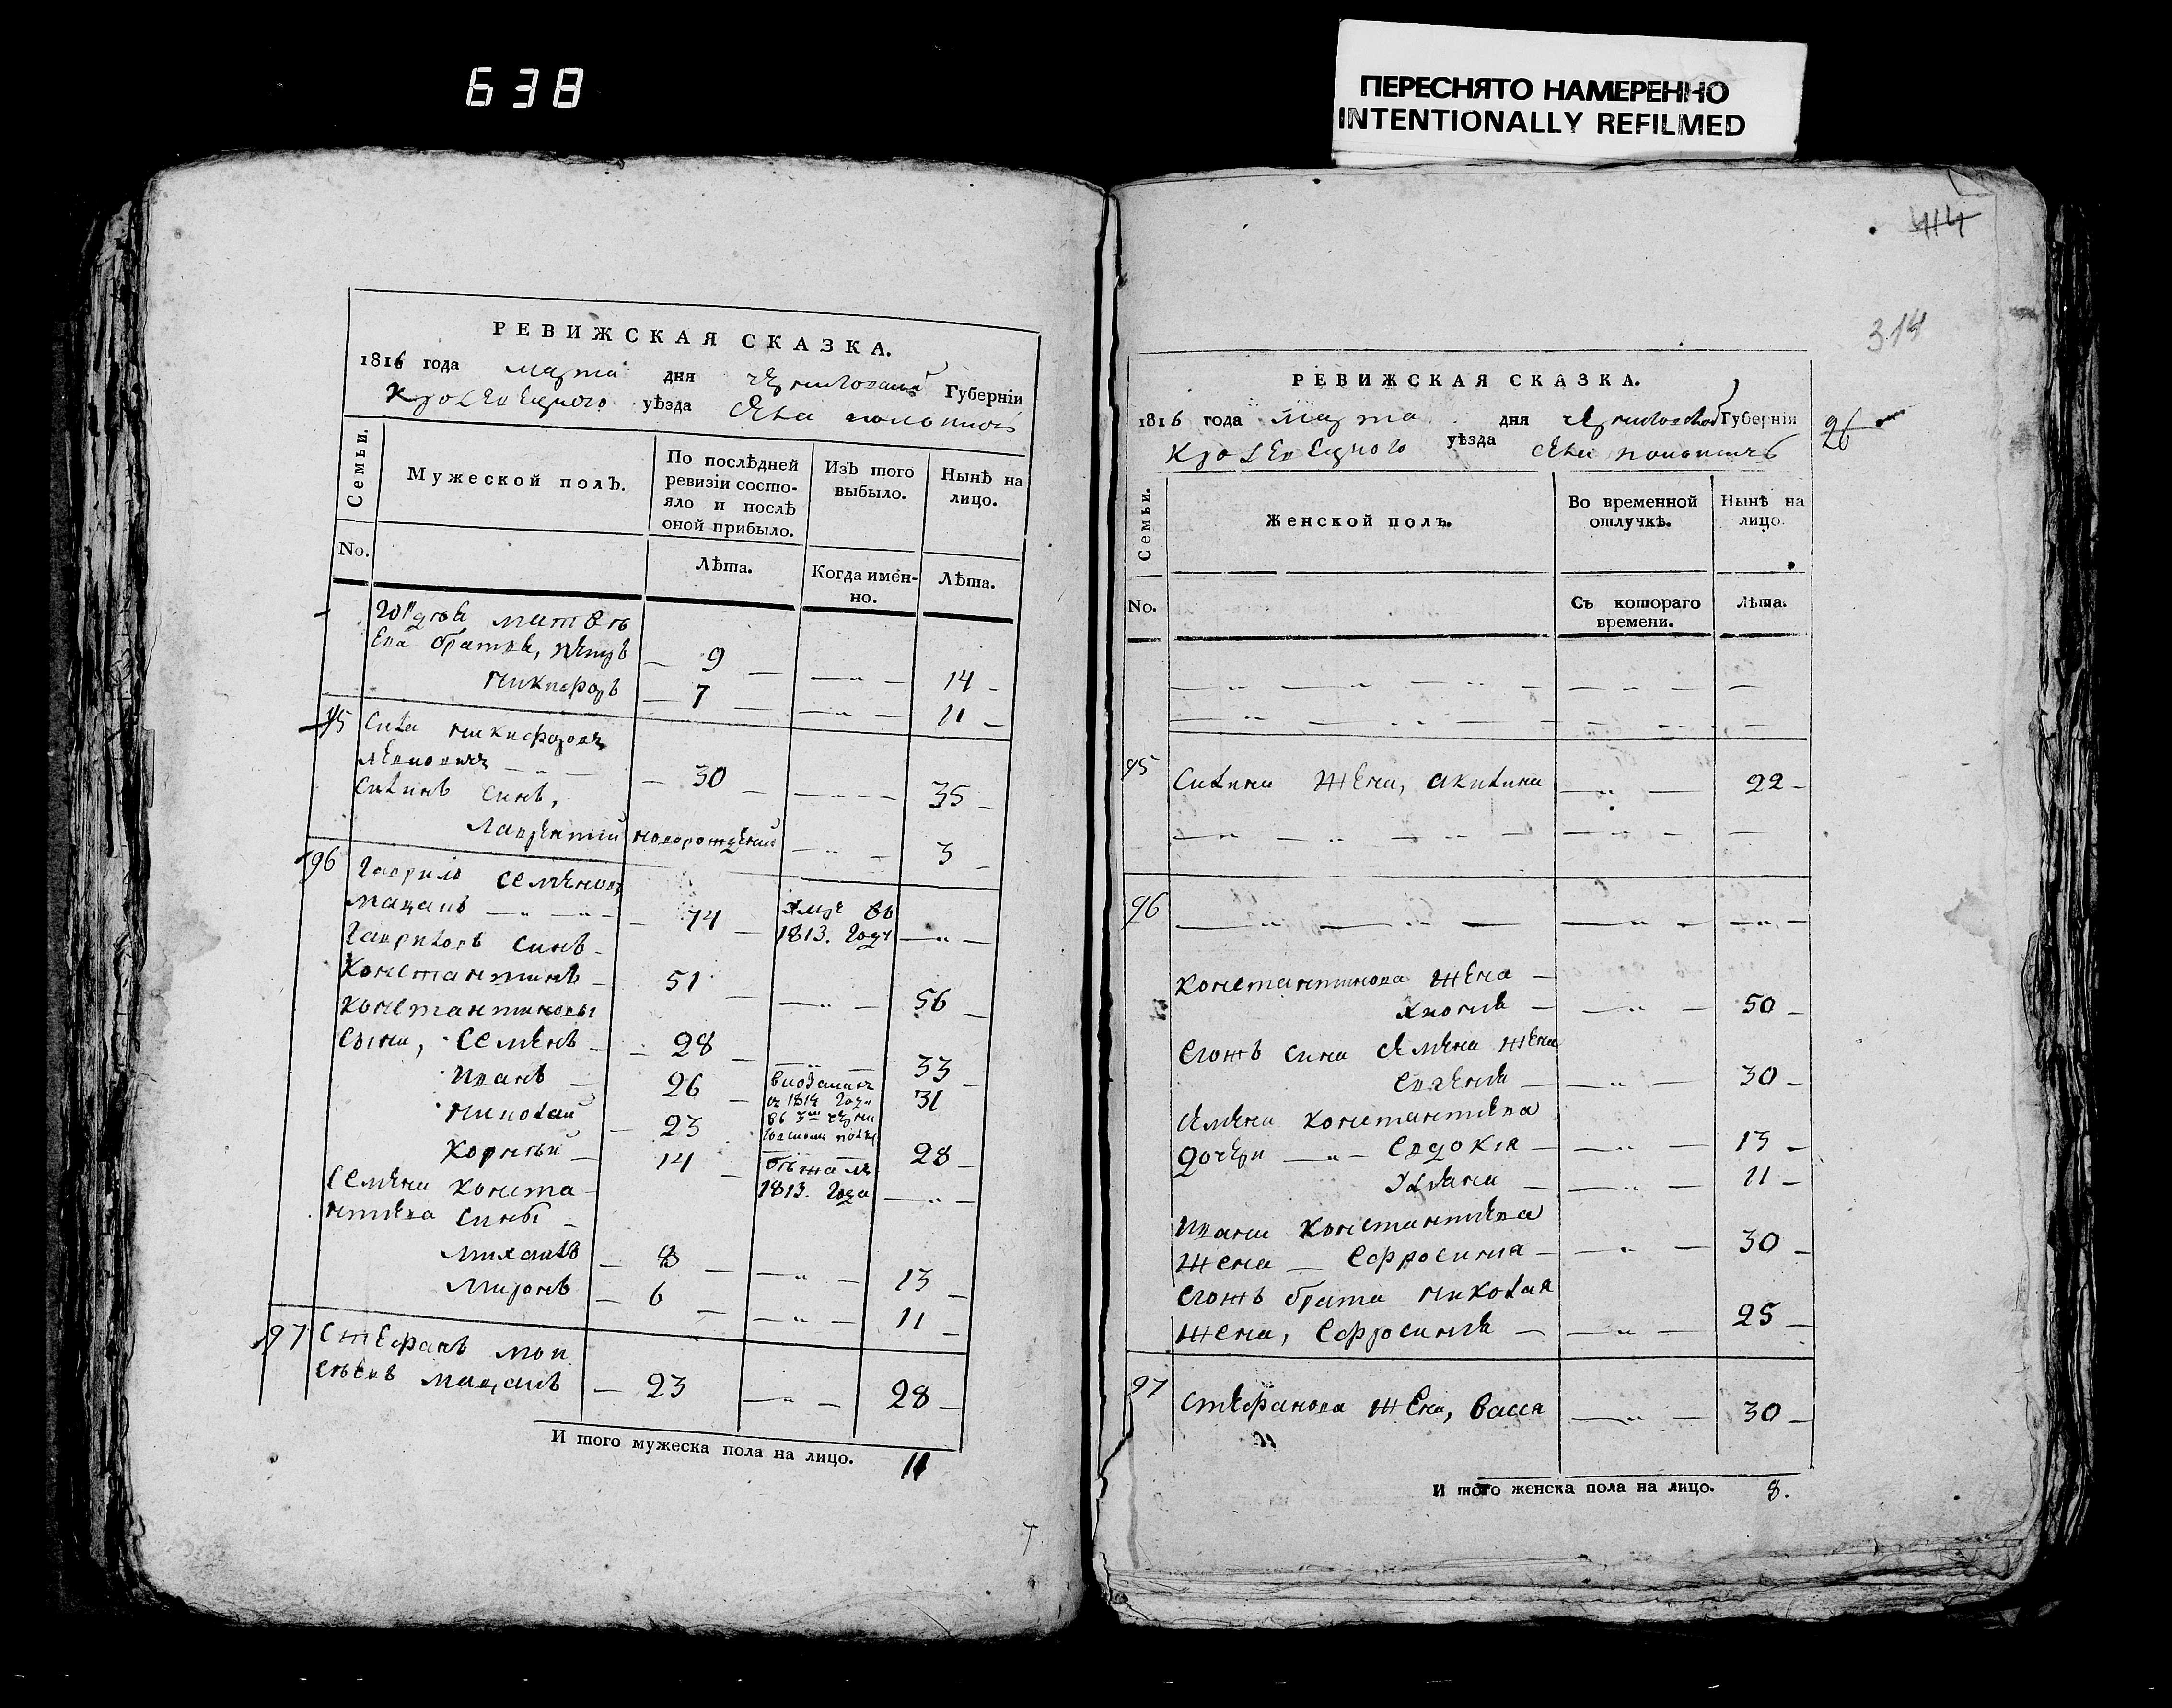 638
ПЕРЕСНЯТО НАМЕРЕННО
INTENTIONALLY REFILMED
414
314
РЕВИЖСКАЯ СКАЗКА.
1816 года марта дня Черниговской Губерніи
Кролевецкого уѣзда Села
Семьи.
Мужеской полъ.
По послѣдней
ревизіи состо-
яло и послѣ
оной прибыло.
Изъ того
выбыло.
Нынѣ на
лицо.
No.
Лѣта.
Когда имен-
но.
Лѣта.
Гордѣя Матвѣ
ева братья, Петръ 9 14
Никифоръ 7 11
95 Сила Никифоровъ
30 35
Силинъ синъ,
Лаврентій новорожденій 3
96 Гаврило Семеновъ
Мацапъ 74 умре въ 1813. году
Гавриловъ синъ
Константинъ 51 56
Константиновы
сыни, Семенъ 28 33
Иванъ 26 31
Николай 23 28
Корнѣй 14 бѣжалъ 1813. года
Семена Конста
нтиева сины
Михаилъ 8 13
Миронъ 6 11
97 Стефанъ Мои
сѣевъ Мацапъ 23 28
И того мужеска пола на лицо. 11
РЕВИЖСКАЯ СКАЗКА.
1816 года марта дня Черниговской Губерніи
Кролевецкого уѣзда Села
26
Семьи.
Женской полъ.
Во временной
отлучкѣ.
Нынѣ на
лицо.
No.
Съ котораго
времени.
Лѣта.
95 Силина жена, Акилина 22
96
Константинова жена
50
Егожъ сина Семена жена
Евгенія 30
Семена Константиева
дочери Евдокія 13
Уляна 11
Ивана Константиева
жена Ефросинія 30
Егожъ брата Николая
жена, Ефросинія 25
97 Стефанова жена, Васса 30
И того женска пола на лицо. 8.